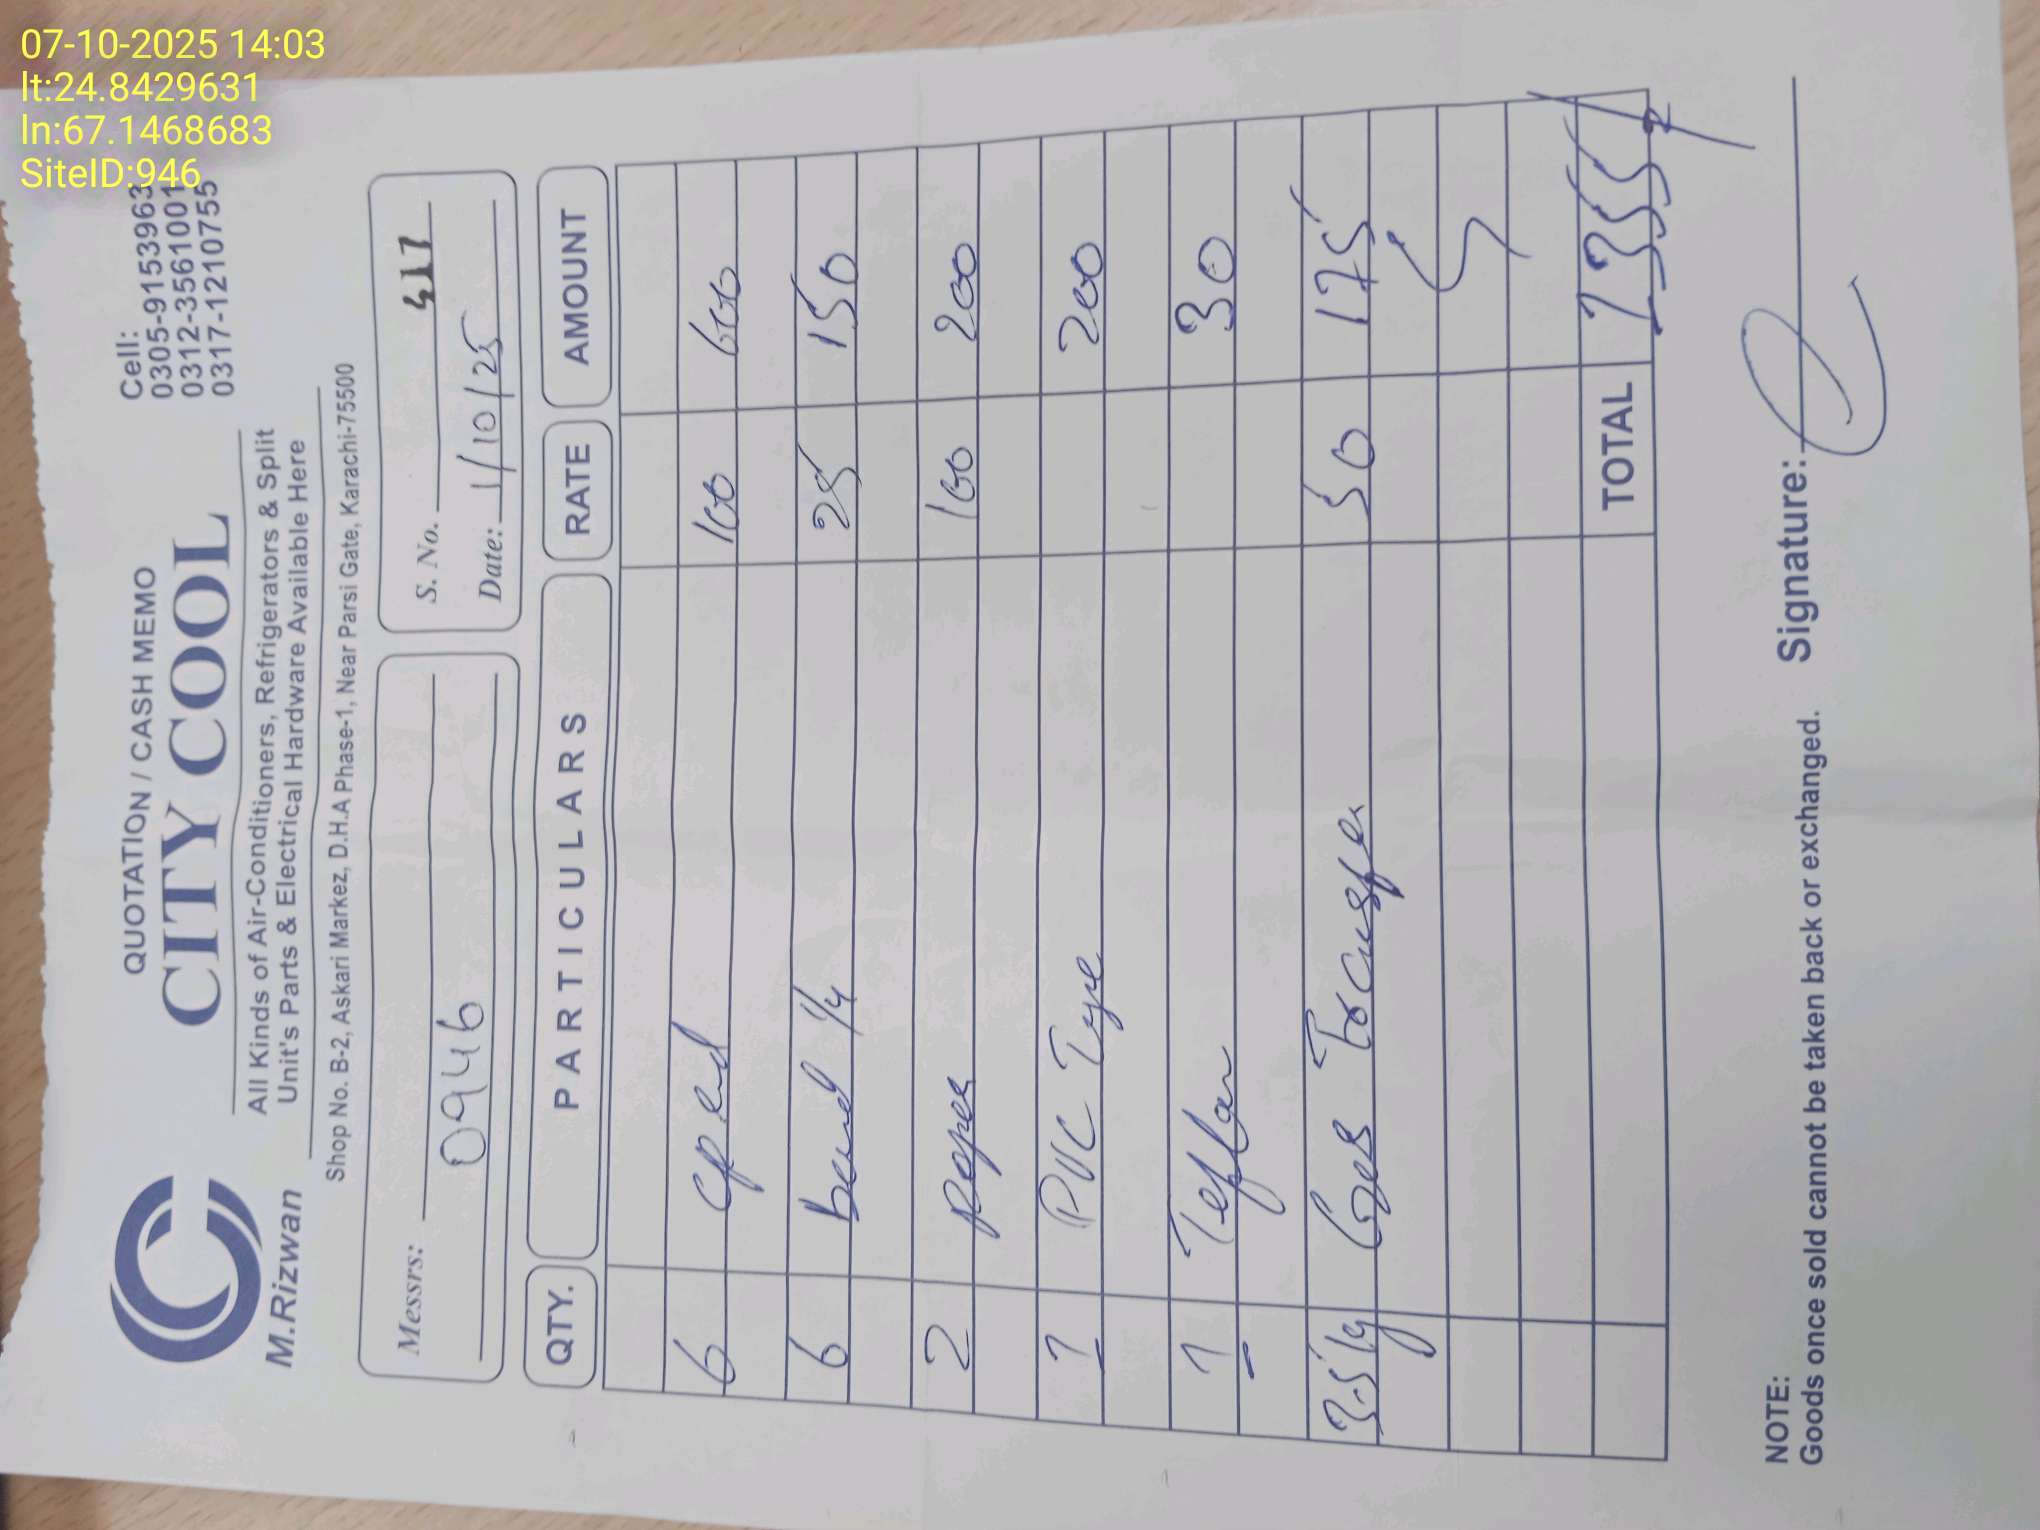 07-10-2025 14:03
lt:24.8429631
ln:67.1468683
SiteID:946
QUOTATION / CASH MEMO
CITY COOL
M.Rizwan
Cell:
0305-9153963
0312-3561001
0317-1210755
All Kinds of Air-Conditioners, Refrigerators & Split
Unit's Parts & Electrical Hardware Available Here
Shop No. B-2, Askari Markez, D.H.A Phase-1, Near Parsi Gate, Karachi-75500
Messrs: 0946
S. No. 417
Date: 1/10/25
QTY. PARTICULARS RATE AMOUNT
6 100 600
6 Band 1/4 25 150
2 100 200
1 PVC Type 200
1 Teflon 30
3.5 kg Gas 50 175
TOTAL 1355
NOTE:
Goods once sold cannot be taken back or exchanged.
Signature: